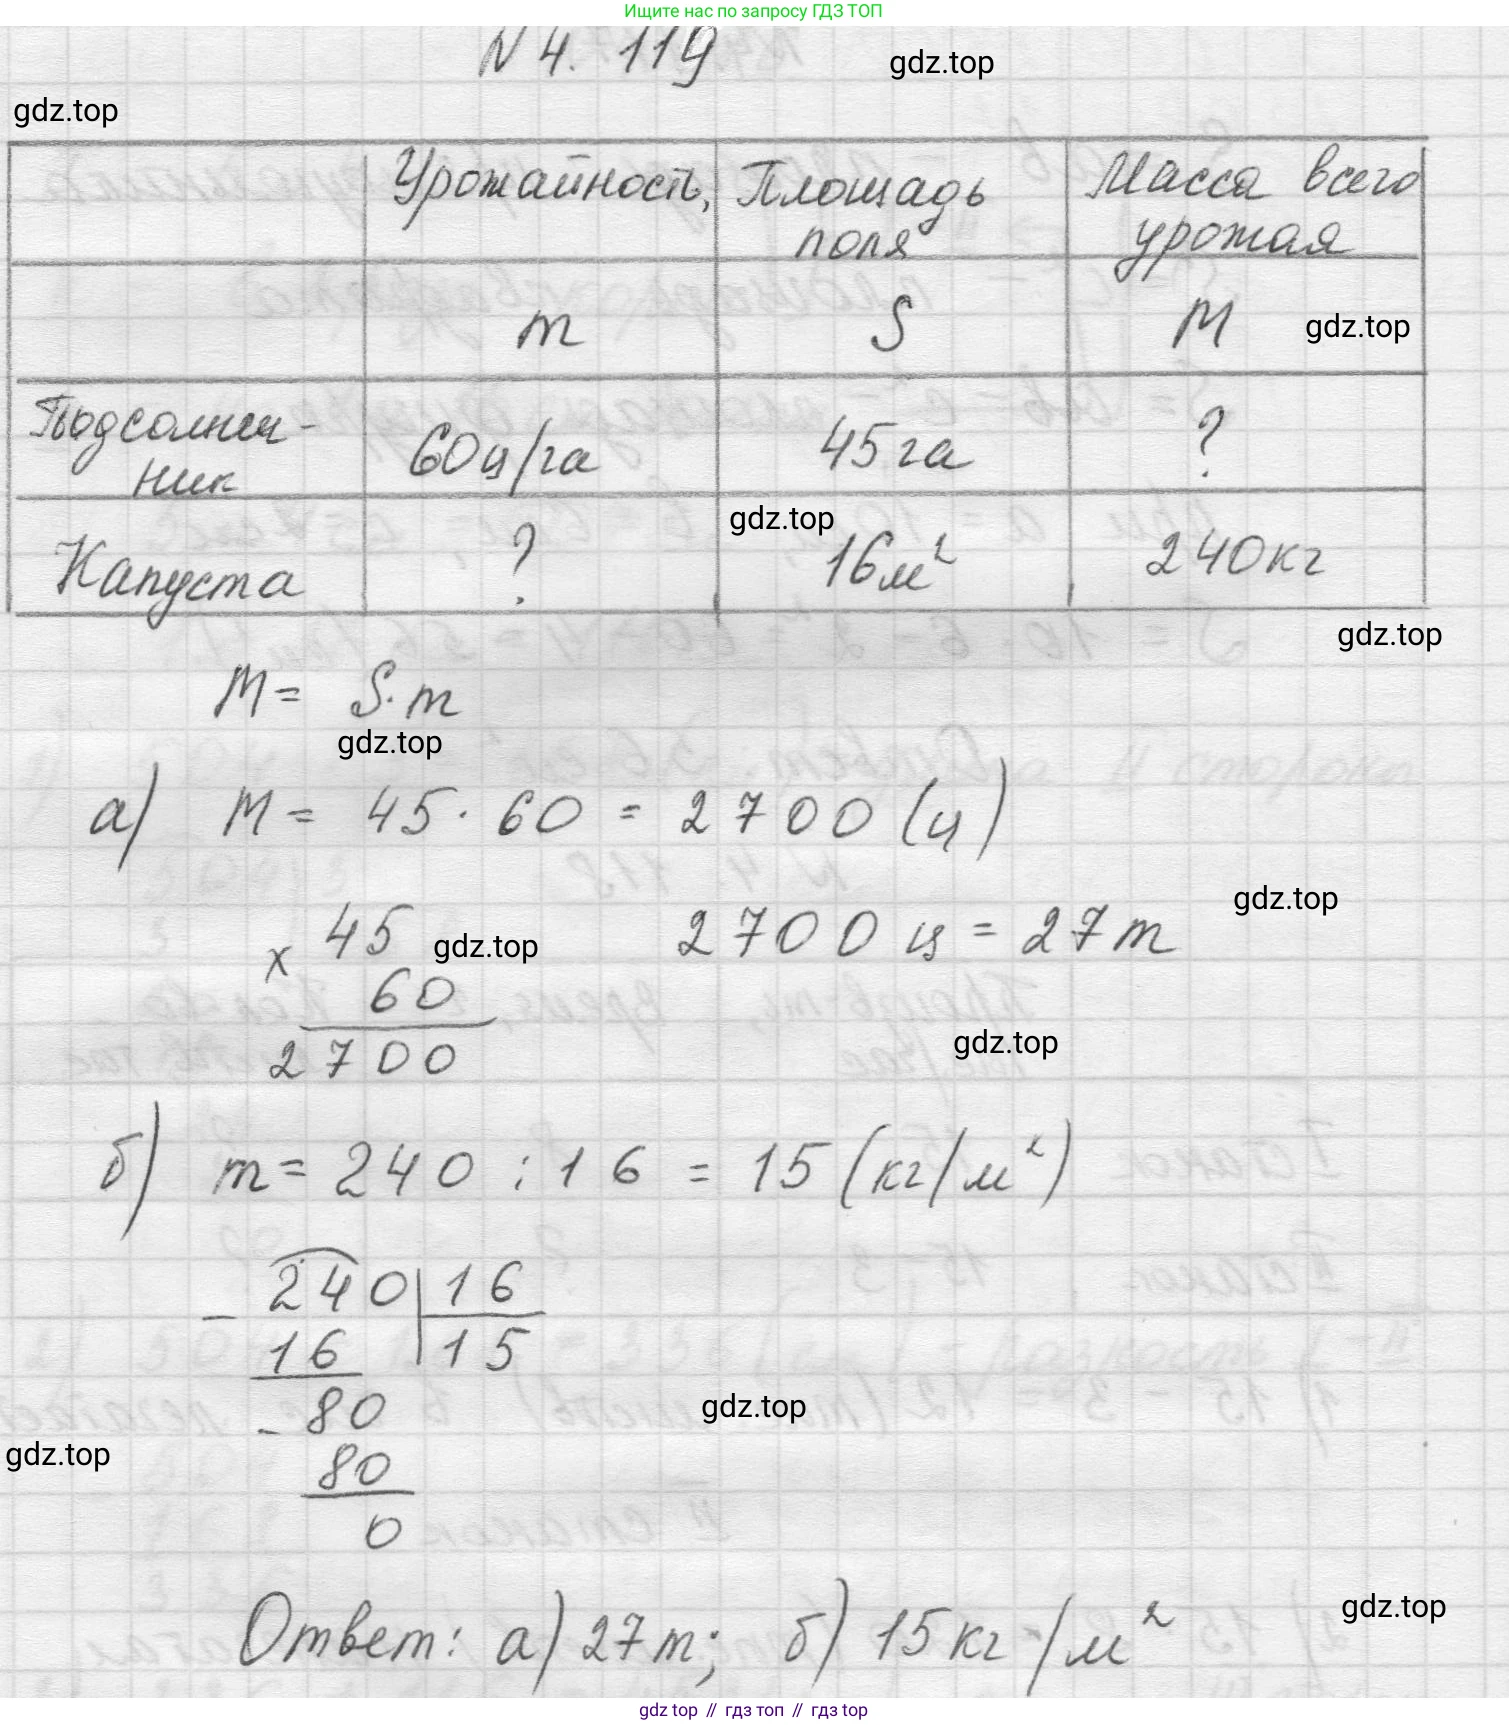 Ищите нас по запросу ГДЗ ТОП
N 4. 119
gdz.top
gdz.top
Урожайность, Площадь поля Масса всего урожая
m S M
gdz.top
Подсолнеч-
ник 60ц/га 45га ?
gdz.top
Капуста ? 16м² 240кг
gdz.top
M = S · m
gdz.top
а) M = 45 · 60 = 2700 (ц)
gdz.top
× 45 2700 ц = 27 т
gdz.top
60
2700
gdz.top
б) m = 240 : 16 = 15 (кг/м²)
- 240 16
16 15
- 80
gdz.top
80
gdz.top
0
gdz.top
Ответ: а) 27 т; б) 15 кг/м²
gdz top // гдз топ // гдз top